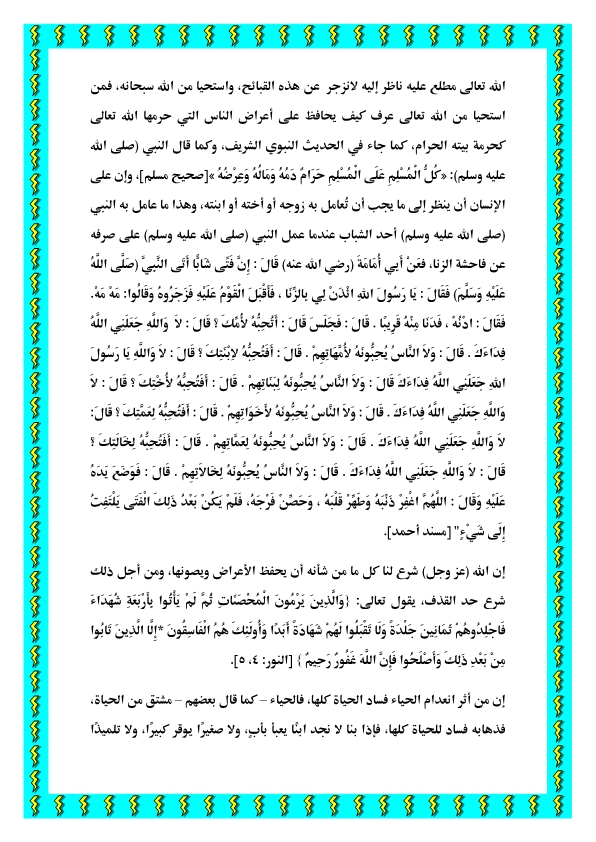 الله تعالى مطلع عليه ناظر إليه لانزجر عن هذه القبائح، واستحيا من الله سبحانه، فمن
استحيا من الله تعالى عرف كيف يحافظ على أعراض الناس التي حرمها الله تعالى
كحرمة بيته الحرام، كما جاء في الحديث النبوي الشريف، وكما قال النبي (صلى الله
عليه وسلم): «كُلُّ الْمُسْلِمِ عَلَى الْمُسْلِمِ حَرَامٌ دَمُهُ وَمَالُهُ وَعِرْضُهُ »[صحيح مسلم]، وإن على
الإنسان أن ينظر إلى ما يجب أن تُعامل به زوجه أو أخته أو ابنته، وهذا ما عامل به النبي
(صلى الله عليه وسلم) أحد الشباب عندما عمل النبي (صلى الله عليه وسلم) على صرفه
عن فاحشة الزنا، فعَنْ أَبِي أُمَامَةَ (رضي الله عنه) قَالَ : إِنَّ فَتًى شَابًّا أَتَى النَّبِيَّ (صَلَّى اللَّهُ
عَلَيْهِ وَسَلَّمَ) فَقَالَ : يَا رَسُولَ اللهِ ائْذَنْ لِي بِالزِّنَا ، فَأَقْبَلَ الْقَوْمُ عَلَيْهِ فَزَجَرُوهُ وَقَالُوا: مَهْ مَهْ.
فَقَالَ : ادْنُهْ ، فَدَنَا مِنْهُ قَرِيبًا . قَالَ : فَجَلَسَ قَالَ : أَتُحِبُّهُ لأُمِّكَ ؟ قَالَ : لاَ وَاللَّهِ جَعَلَنِي اللَّهُ
فِدَاءَكَ . قَالَ : وَلاَ النَّاسُ يُحِبُّونَهُ لأُمَّهَاتِهِمْ . قَالَ : أَفَتُحِبُّهُ لاِبْنَتِكَ ؟ قَالَ : لاَ وَاللَّهِ يَا رَسُولَ
اللهِ جَعَلَنِي اللَّهُ فِدَاءَكَ قَالَ : وَلاَ النَّاسُ يُحِبُّونَهُ لِبَنَاتِهِمْ . قَالَ : أَفَتُحِبُّهُ لأُخْتِكَ ؟ قَالَ : لاَ
وَاللَّهِ جَعَلَنِي اللَّهُ فِدَاءَكَ . قَالَ : وَلاَ النَّاسُ يُحِبُّونَهُ لأَخَوَاتِهِمْ . قَالَ : أَفَتُحِبُّهُ لِعَمَّتِكَ ؟ قَالَ:
لاَ وَاللَّهِ جَعَلَنِي اللَّهُ فِدَاءَكَ . قَالَ : وَلاَ النَّاسُ يُحِبُّونَهُ لِعَمَّاتِهِمْ . قَالَ : أَفَتُحِبُّهُ لِخَالَتِكَ ؟
قَالَ : لاَ وَاللَّهِ جَعَلَنِي اللَّهُ فِدَاءَكَ . قَالَ : وَلاَ النَّاسُ يُحِبُّونَهُ لِخَالاَتِهِمْ . قَالَ : فَوَضَعَ يَدَهُ
عَلَيْهِ وَقَالَ : اللَّهُمَّ اغْفِرْ ذَنْبَهُ وَطَهِّرْ قَلْبَهُ ، وَحَصِّنْ فَرْجَهُ، فَلَمْ يَكُنْ بَعْدُ ذَلِكَ الْفَتَى يَلْتَفِتُ
إِلَى شَيْءٍ" [مسند أحمد].
إن الله (عز وجل) شرع لنا كل ما من شأنه أن يحفظ الأعراض ويصونها، ومن أجل ذلك
شرع حد القذف، يقول تعالى: {وَالَّذِينَ يَرْمُونَ الْمُحْصَنَاتِ ثُمَّ لَمْ يَأْتُوا بِأَرْبَعَةِ شُهَدَاءَ
فَاجْلِدُوهُمْ ثَمَانِينَ جَلْدَةً وَلَا تَقْبَلُوا لَهُمْ شَهَادَةً أَبَدًا وَأُولَئِكَ هُمُ الْفَاسِقُونَ *إِلَّا الَّذِينَ تَابُوا
مِنْ بَعْدِ ذَلِكَ وَأَصْلَحُوا فَإِنَّ اللَّهَ غَفُورٌ رَحِيمٌ } [النور: ٤، ٥].
إن من أثر انعدام الحياء فساد الحياة كلها، فالحياء – كما قال بعضهم – مشتق من الحياة،
فذهابه فساد للحياة كلها، فإذا بنا لا نجد ابنًا يعبأ بأبٍ، ولا صغيرًا يوقر كبيرًا، ولا تلميذًا